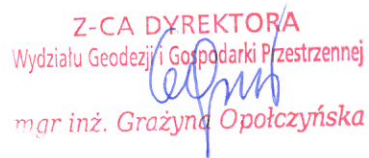 Z-CA DYREKTORA
Wydziału Geodezji i Gospodarki Przestrzennej
mgr inż. Grażyna Opołczyńska